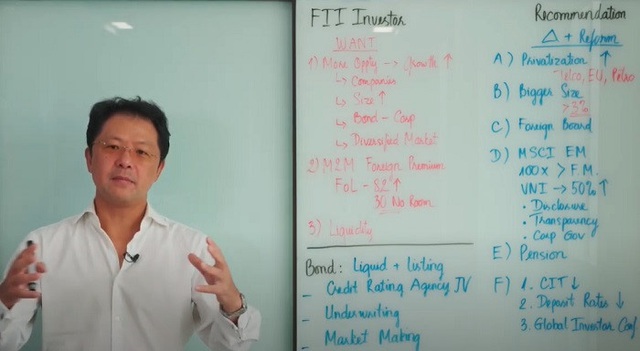 FII Investor
WANT
1) More Oppty → Growth ↑
↳ Companies
↳ Size ↑
↳ Bond - Corp
↳ Diversified Market
2) M2M Foreign Premium
FOL - 82 ↑
30 No Room
3) Liquidity
Bond: Liquid + Listing
- Credit Rating Agency JV
- Underwriting
- Market Making
Recommendation
△ + Reform
A) Privatization ↑
- Telco, EU, Petro
B) Bigger Size
> 3%
C) Foreign Board
D) MSCI EM
100x > F.M.
VNI → 50% ↑
• Disclosure
• Transparency
• Corp Gov
E) Pension
F) 1. CIT ↓
2. Deposit Rates ↓
3. Global Investor Conf